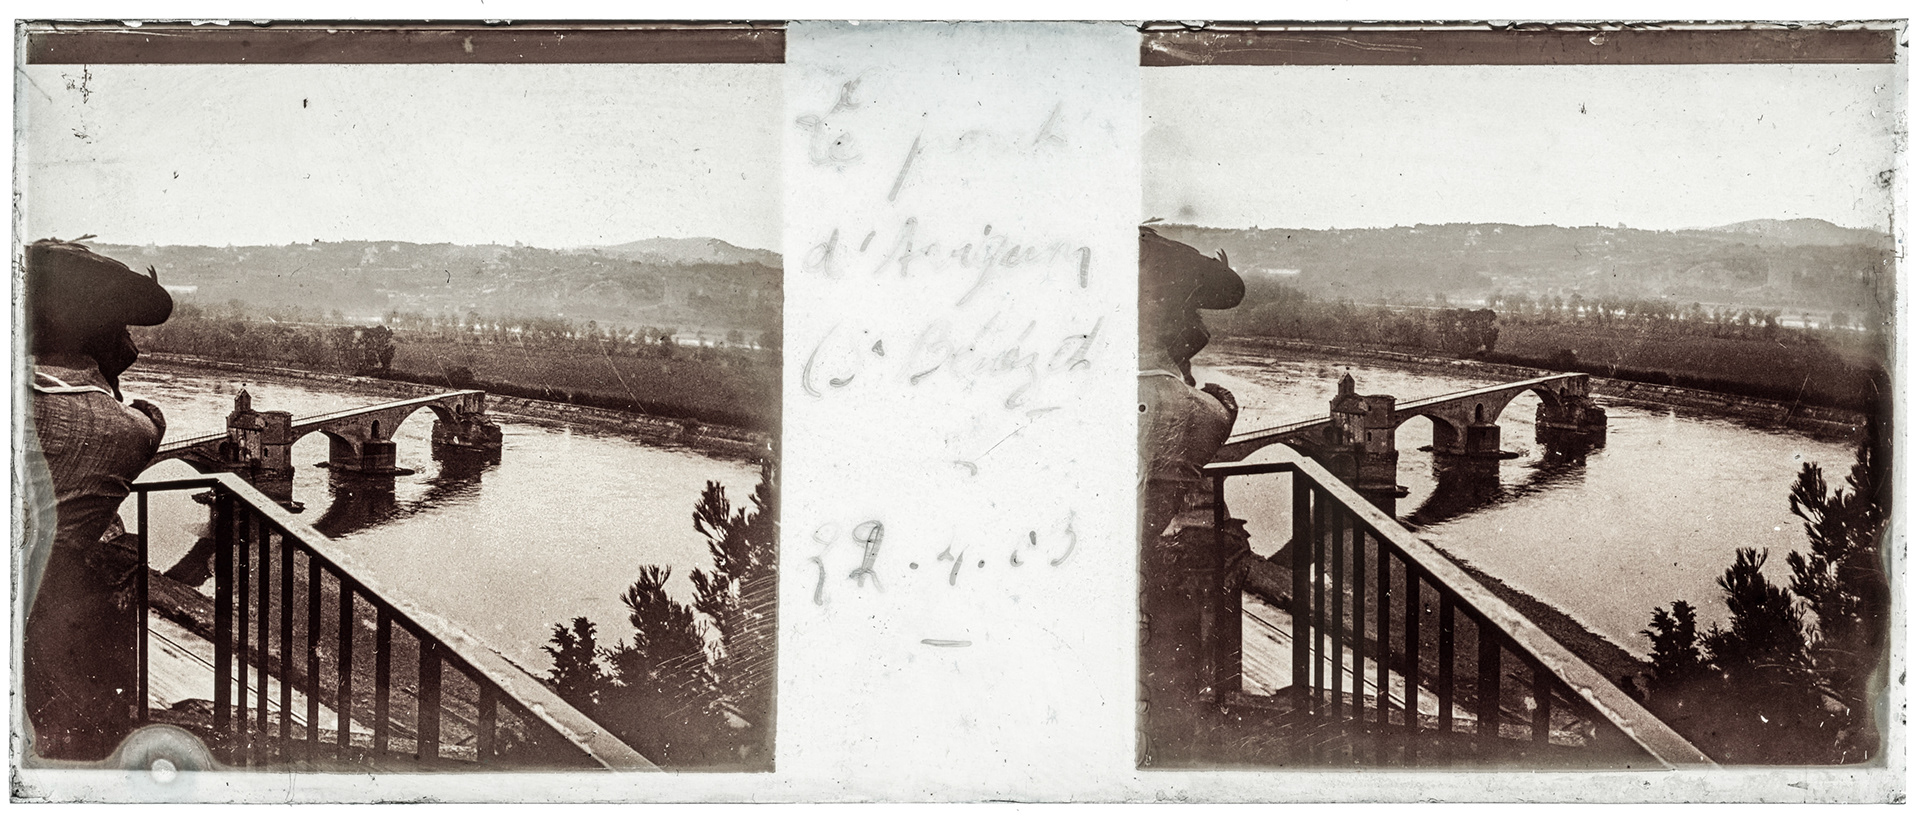 Le pont
d'Avignon
(St Bénézet
22.4.03